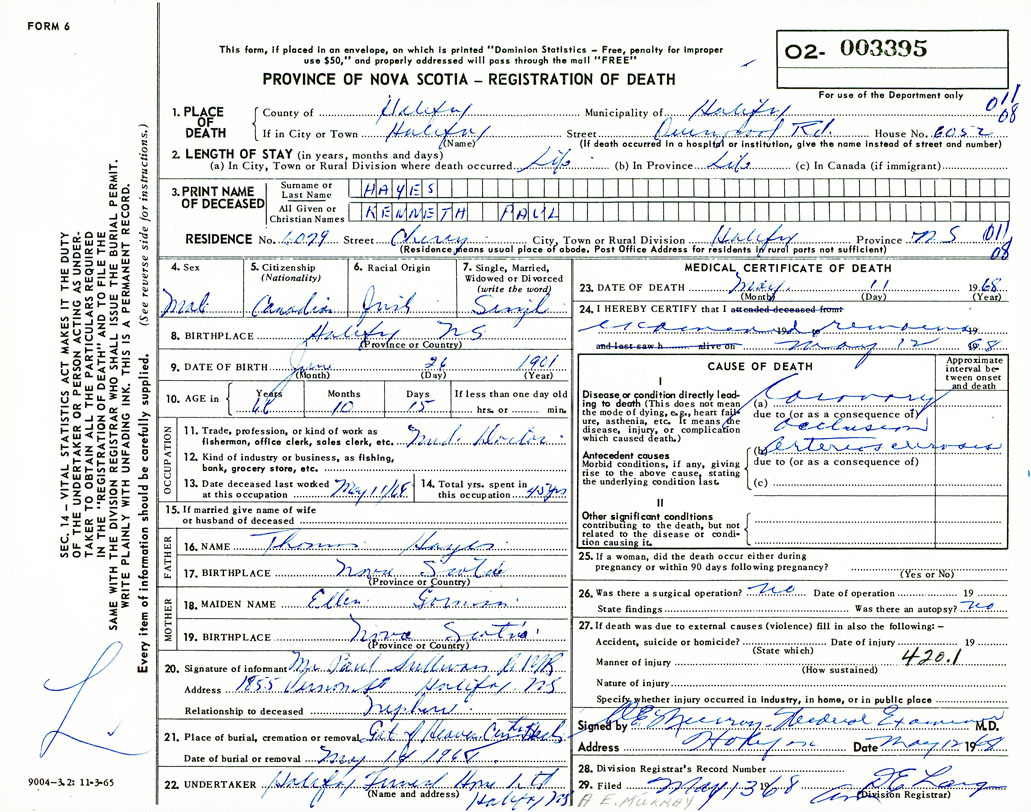 FORM 6
This form, if placed in an envelope, on which is printed "Dominion Statistics - Free, penalty for improper
use $50," and properly addressed will pass through the mail "FREE"
PROVINCE OF NOVA SCOTIA – REGISTRATION OF DEATH
O2- 003395
For use of the Department only
011
08
1. PLACE OF DEATH County of Halifax Municipality of Halifax
If in City or Town Halifax (Name) Street Rd. House No. 6052
(If death occurred in a hospital or institution, give the name instead of street and number)
2. LENGTH OF STAY (in years, months and days)
(a) In City, Town or Rural Division where death occurred Life (b) In Province Life (c) In Canada (if immigrant)
3. PRINT NAME OF DECEASED
Surname or Last Name HAYES
All Given or Christian Names KENNETH PAUL
RESIDENCE No. 6079 Street Cherry City, Town or Rural Division Halifax Province NS 011
08
(Residence means usual place of abode. Post Office Address for residents in rural parts not sufficient)
4. Sex Male
5. Citizenship (Nationality) Canadian
6. Racial Origin Irish
7. Single, Married, Widowed or Divorced (write the word) Single
8. BIRTHPLACE Halifax NS
(Province or Country)
9. DATE OF BIRTH June 26 1901
(Month) (Day) (Year)
10. AGE in Years 66 Months 10 Days 15 If less than one day old hrs. or min.
OCCUPATION
11. Trade, profession, or kind of work as fisherman, office clerk, sales clerk, etc. Med. Doctor
12. Kind of industry or business, as fishing, bank, grocery store, etc.
13. Date deceased last worked at this occupation May 11/68
14. Total yrs. spent in this occupation 45 yrs
15. If married give name of wife or husband of deceased
FATHER
16. NAME Thomas Hayes
17. BIRTHPLACE Nova Scotia
(Province or Country)
MOTHER
18. MAIDEN NAME Ellen
19. BIRTHPLACE Nova Scotia
(Province or Country)
20. Signature of informant Mr Paul Sullivan
Address 1855 Vernon St Halifax, NS
Relationship to deceased Nephew
21. Place of burial, cremation or removal Gate of Heaven
Date of burial or removal May 14 1968
22. UNDERTAKER Halifax Funeral Home Ltd
(Name and address) Halifax NS
MEDICAL CERTIFICATE OF DEATH
23. DATE OF DEATH May 11 1968
(Month) (Day) (Year)
24. I HEREBY CERTIFY that I attended deceased from:
examined remains 19
and last saw h alive on May 12 1968
CAUSE OF DEATH
Approximate interval between onset and death
I
Disease or condition directly leading to death (This does not mean the mode of dying, e.g., heart failure, asthenia, etc. It means the disease, injury, or complication which caused death.)
(a) Coronary
due to (or as a consequence of)
occlusion
Antecedent causes
Morbid conditions, if any, giving rise to the above cause, stating the underlying condition last.
(b) Arteriosclerosis
due to (or as a consequence of)
(c)
II
Other significant conditions contributing to the death, but not related to the disease or condition causing it.
25. If a woman, did the death occur either during pregnancy or within 90 days following pregnancy?
(Yes or No)
26. Was there a surgical operation? No Date of operation 19
State findings Was there an autopsy? No
27. If death was due to external causes (violence) fill in also the following: –
Accident, suicide or homicide? Date of injury 19
(State which)
Manner of injury 420.1
(How sustained)
Nature of injury
Specify whether injury occurred in Industry, in home, or in public place
Signed by Murray Medical Examiner M.D.
Address Date May 12 1968
28. Division Registrar's Record Number
29. Filed May 13 1968
(Division Registrar)
A E. MURRAY
SEC. 14 – VITAL STATISTICS ACT MAKES IT THE DUTY
OF THE UNDERTAKER OR PERSON ACTING AS UNDER-
TAKER TO OBTAIN ALL THE PARTICULARS REQUIRED
IN THE "REGISTRATION OF DEATH" AND TO FILE THE
SAME WITH THE DIVISION REGISTRAR WHO SHALL ISSUE THE BURIAL PERMIT.
WRITE PLAINLY WITH UNFADING INK. THIS IS A PERMANENT RECORD.
Every item of information should be carefully supplied. (See reverse side for instructions.)
9004-3.2: 11-3-65